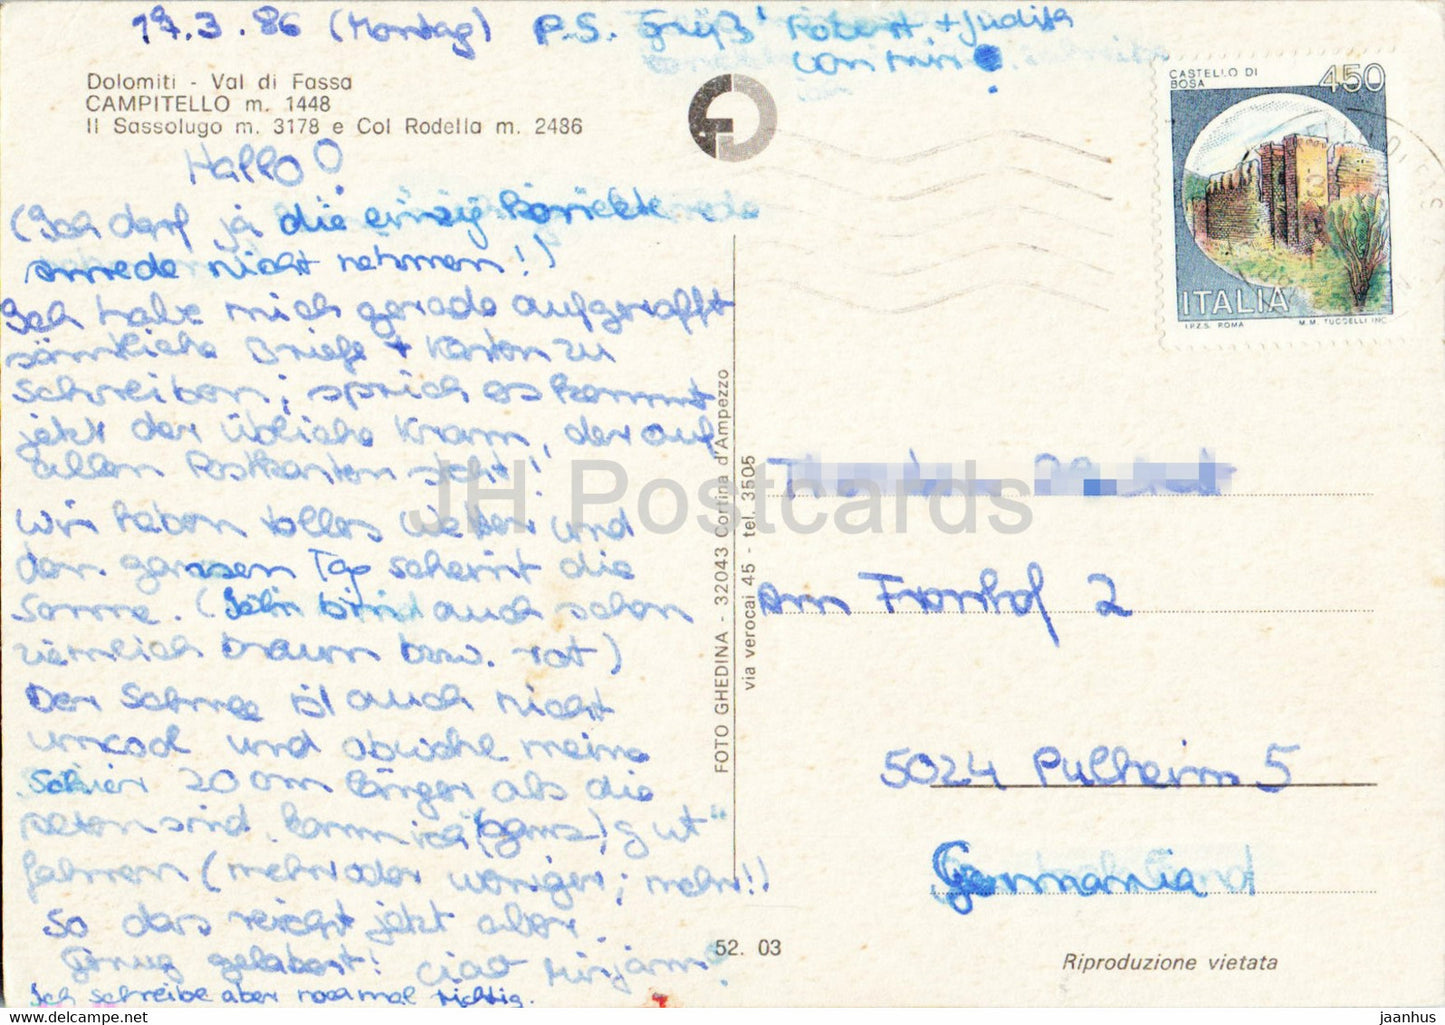 17.3.86 (Montag) P.S. Grüß' Robert + Judith
von mir
Dolomiti - Val di Fassa
CAMPITELLO m. 1448
Il Sassolugo m. 3178 e Col Rodella m. 2486
CASTELLO DI
BOSA
450
ITALIA
I.P.Z.S. ROMA M.M. TUCCELLI INC.
Hallo
(Ich darf ja die einzig korrekte
anrede nicht nehmen!)
Ich habe mich gerade aufgerafft
sämtliche Briefe + Karten zu
schreiben; sprich es kommt
jetzt der übliche Kram, der auf
allen Postkarten steht!
Wir haben tolles Wetter und
den ganzen Tag scheint die
Sonne. (bin auch schon
ziemlich braun bzw. rot)
Der Schnee ist auch nicht
uncool und obwohl meine
Schier 20 cm länger als die
sind, kann ich (ganz) "gut"
fahren (mehr oder weniger; mehr!)
So das reicht jetzt aber.
Genug gelabert! Ciao Mirjam
Ich schreibe aber nochmal richtig.
FOTO GHEDINA - 32043 Cortina d'Ampezzo
via verocai 45 - tel. 3505
JH Postcards
Am Fronhof 2
5024 Pulheim 5
Germania
52. 03
Riproduzione vietata
jaanhus-postcards.com